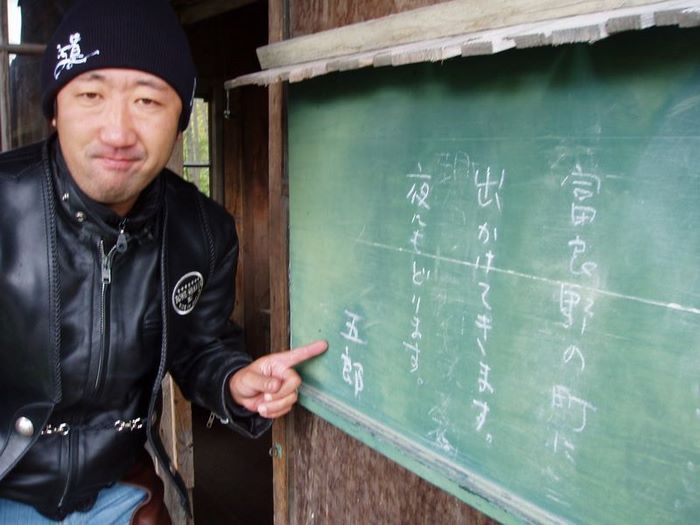 富良野の町に
出かけてきます。
夜にもどります。
五郎